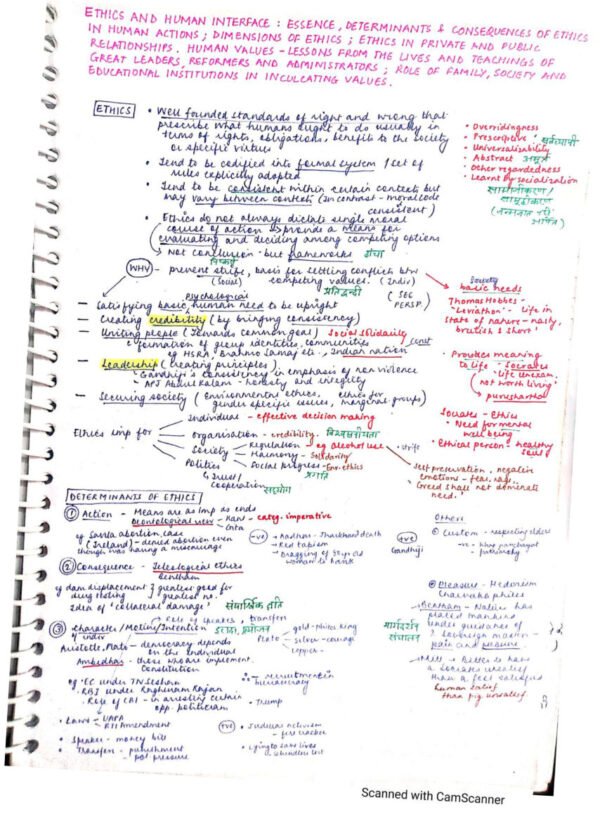 ETHICS AND HUMAN INTERFACE : ESSENCE, DETERMINANTS & CONSEQUENCES OF ETHICS
IN HUMAN ACTIONS ; DIMENSIONS OF ETHICS ; ETHICS IN PRIVATE AND PUBLIC
RELATIONSHIPS. HUMAN VALUES - LESSONS FROM THE LIVES AND TEACHINGS OF
GREAT LEADERS, REFORMERS AND ADMINISTRATORS ; ROLE OF FAMILY, SOCIETY AND
EDUCATIONAL INSTITUTIONS IN INCULCATING VALUES.
ETHICS
• Well founded standards of right and wrong that
prescribe what humans ought to do usually in
terms of rights, obligations, benefit to the society
or specific virtues
• Tend to be codified into formal system / set of
rules explicitly adopted
• Tend to be consistent within certain contexts but
may vary between contexts (In contrast - moral code
consistent)
• Ethics do not always dictate single moral
course of action → provide a means for
evaluating and deciding among competing options
Not conclusion but frameworks
निष्कर्ष ढांचा
• Overridingness
• Prescriptive
• Universalizability सर्वव्यापी
• Abstract अमूर्त
• Other regardedness
• Learnt by socialization
सामाजीकरण /
WHY - prevent strife, basis for settling conflicts btw
(Social) competing values. (Indiv)
प्रतिद्वन्दी
psychological
- Satisfying basic human need to be upright
- Creating credibility (by bringing consistency)
- Uniting people (towards common goal) Social Solidarity
formation of group identities, communities
eg HSRA, Brahmo Samaj etc., Indian nation
- Leadership (creating principles)
- Gandhiji's consistency in emphasis of non violence
- APJ Abdul Kalam - honesty and integrity
- Securing society (Environmental ethics, ethics for
gender specific issues, marginal groups)
Society
basic needs
Thomas Hobbes -
"Leviathan" - life in
State of nature - nasty,
brutish & short"
• Provides meaning
to life - Socrates
"Life unexam.
not worth living"
purushartha
Socrates - Ethics
Need for mental
well being
Ethical person - healthy
soul
Ethics imp for
Individual - effective decision making
organisation - credibility विश्वसनीयता
Society - Regulation eg alcohol use
Harmony - Solidarity
Polities - Social progress - Env. ethics
प्रगति
Trust /
Cooperation
सहयोग
Self preservation, negative
emotions - fear, rage..
"Greed shall not dominate
need."
DETERMINANTS OF ETHICS
① Action - Means are as imp as ends
Deontological view - Kant - categ. imperative
Gita
eg Savita abortion case
(Ireland) - denied abortion even
though was having a miscarriage
-ve → Aadhar - Jharkhand death
→ Red tapism
→ Dragging of 90 yr old
woman to bank
+ve
Gandhiji
Others
① Custom - respecting elders
-ve - khap panchayat
- patriarchy
② Consequence - Teleological ethics
Bentham
eg dam displacement } greatest good for
drug testing } greatest no.
Idea of "collateral damage"
③ Character / Motive / Intention
of indiv
Role of speaker, transfers
Aristotle, Plato - democracy depends
on the individual
Plato - gold - philos. king
silver - courage
copper -
Ambedkar - those who are implement.
Constitution
eg 'EC under TN Seshan
• RBI under Raghuram Rajan
Role of CBI - in arresting certain
opp. politician
∴ - recruitment in
bureaucracy
• Trump
• Laws - UAPA
RTI Amendment
• Speaker - money bill
• Transfers - punishment
- pol. pressure
+ve
• Judicial activism
- fire cracker
• Lying to save lives
मार्गदर्शन
संचालन
② Pleasure - Hedonism
Charvaka philos
Bentham - Nature has
placed mankind
under guidance of
2 sovereign masters -
pain and pleasure
Mill - Better to have
a Socrates unsatisf
than a fool satisfied
human unsatisf
than pig
Scanned with CamScanner